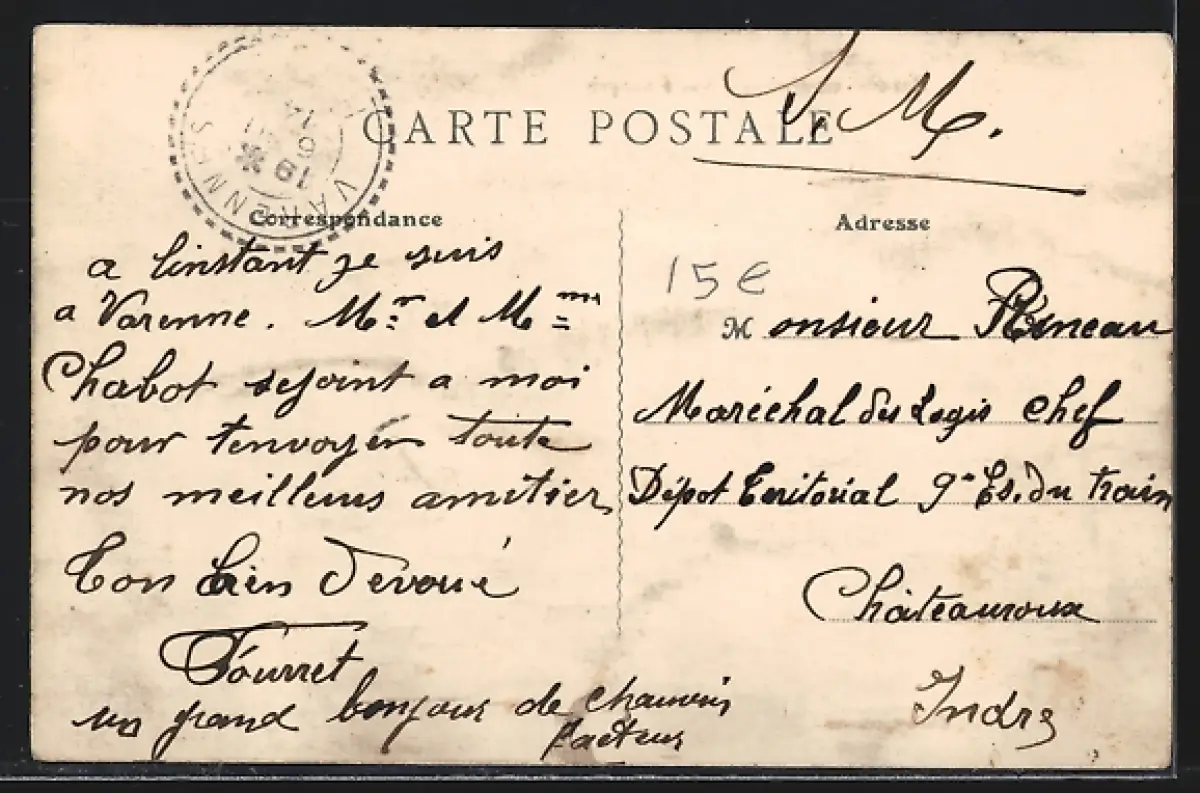 S. M.
CARTE POSTALE
VARENNES
Correspondance
a linstant je suis
a Varenne. Mr et Mme
Chabot sejoint a moi
pour tenvoyer toute
nos meilleurs amitier
Ton bien Devoué
Fourret
un grand bonjour de chauvin
facteur
Adresse
15€
Monsieur Rineau
Maréchal des Logis chef
Dépot Territorial 9e Es. du train
Châteauroux
Indre